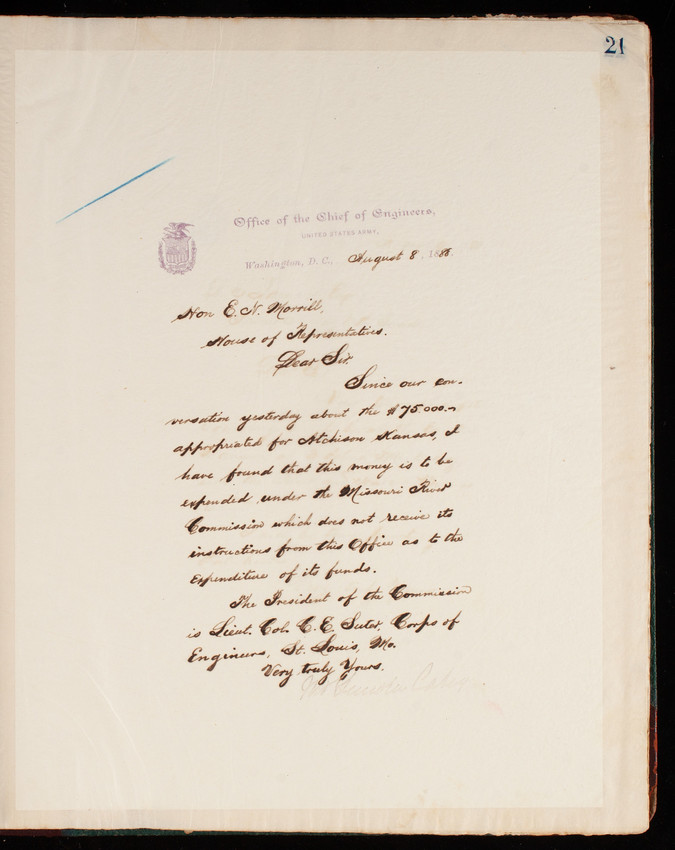 21
Office of the Chief of Engineers,
UNITED STATES ARMY,
Washington, D.C., August 8, 1888.
Hon E. N. Morrill,
House of Representatives.
Dear Sir.
Since our con-
versation yesterday about the $75000.-
appropriated for Atchison Kansas, I
have found that this money is to be
expended under the Missouri River
Commission which does not receive its
instructions from this Office as to the
Expenditure of its funds.
The President of the Commission
is Lieut. Col. C. E. Suter, Corps of
Engineers, St. Louis, Mo.
Very truly Yours.
Lincoln Casey